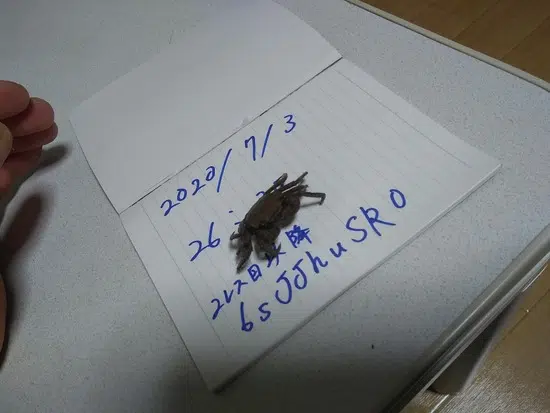 2020/7/3
26:
2レス目以降
6sJJhuSR0